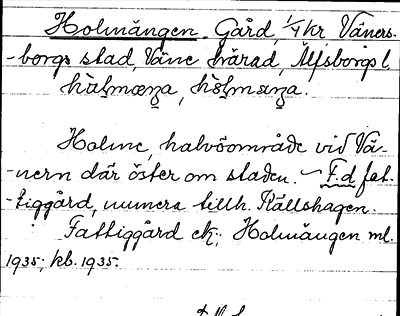 Holmängen. Gård, 1/4 kr, Väners-
-borgs stad, Väne härad, Älfsborgs l.

Holme, halvöområde vid Vä-
-nern där öster om staden. – F.d fat-
-tiggård, numera tillh. Källshagen.
Fattiggård ek; Holmängen ml.
1935; kb. 1935.